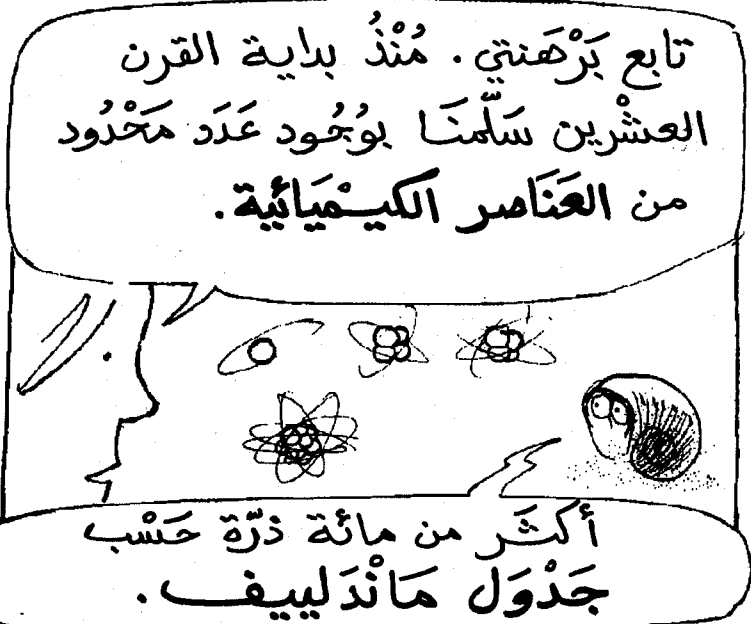 تابع بَرْهَنتي. مُنْذُ بداية القرن
العشْرين سَلَّمنَا بوُجُود عَدَد مَحْدُود
من العَنَاصر الكيـمْيَائية.
أكثَر من مائة ذرّة حَسْب
جَدْوَل مَانْدَلييف.